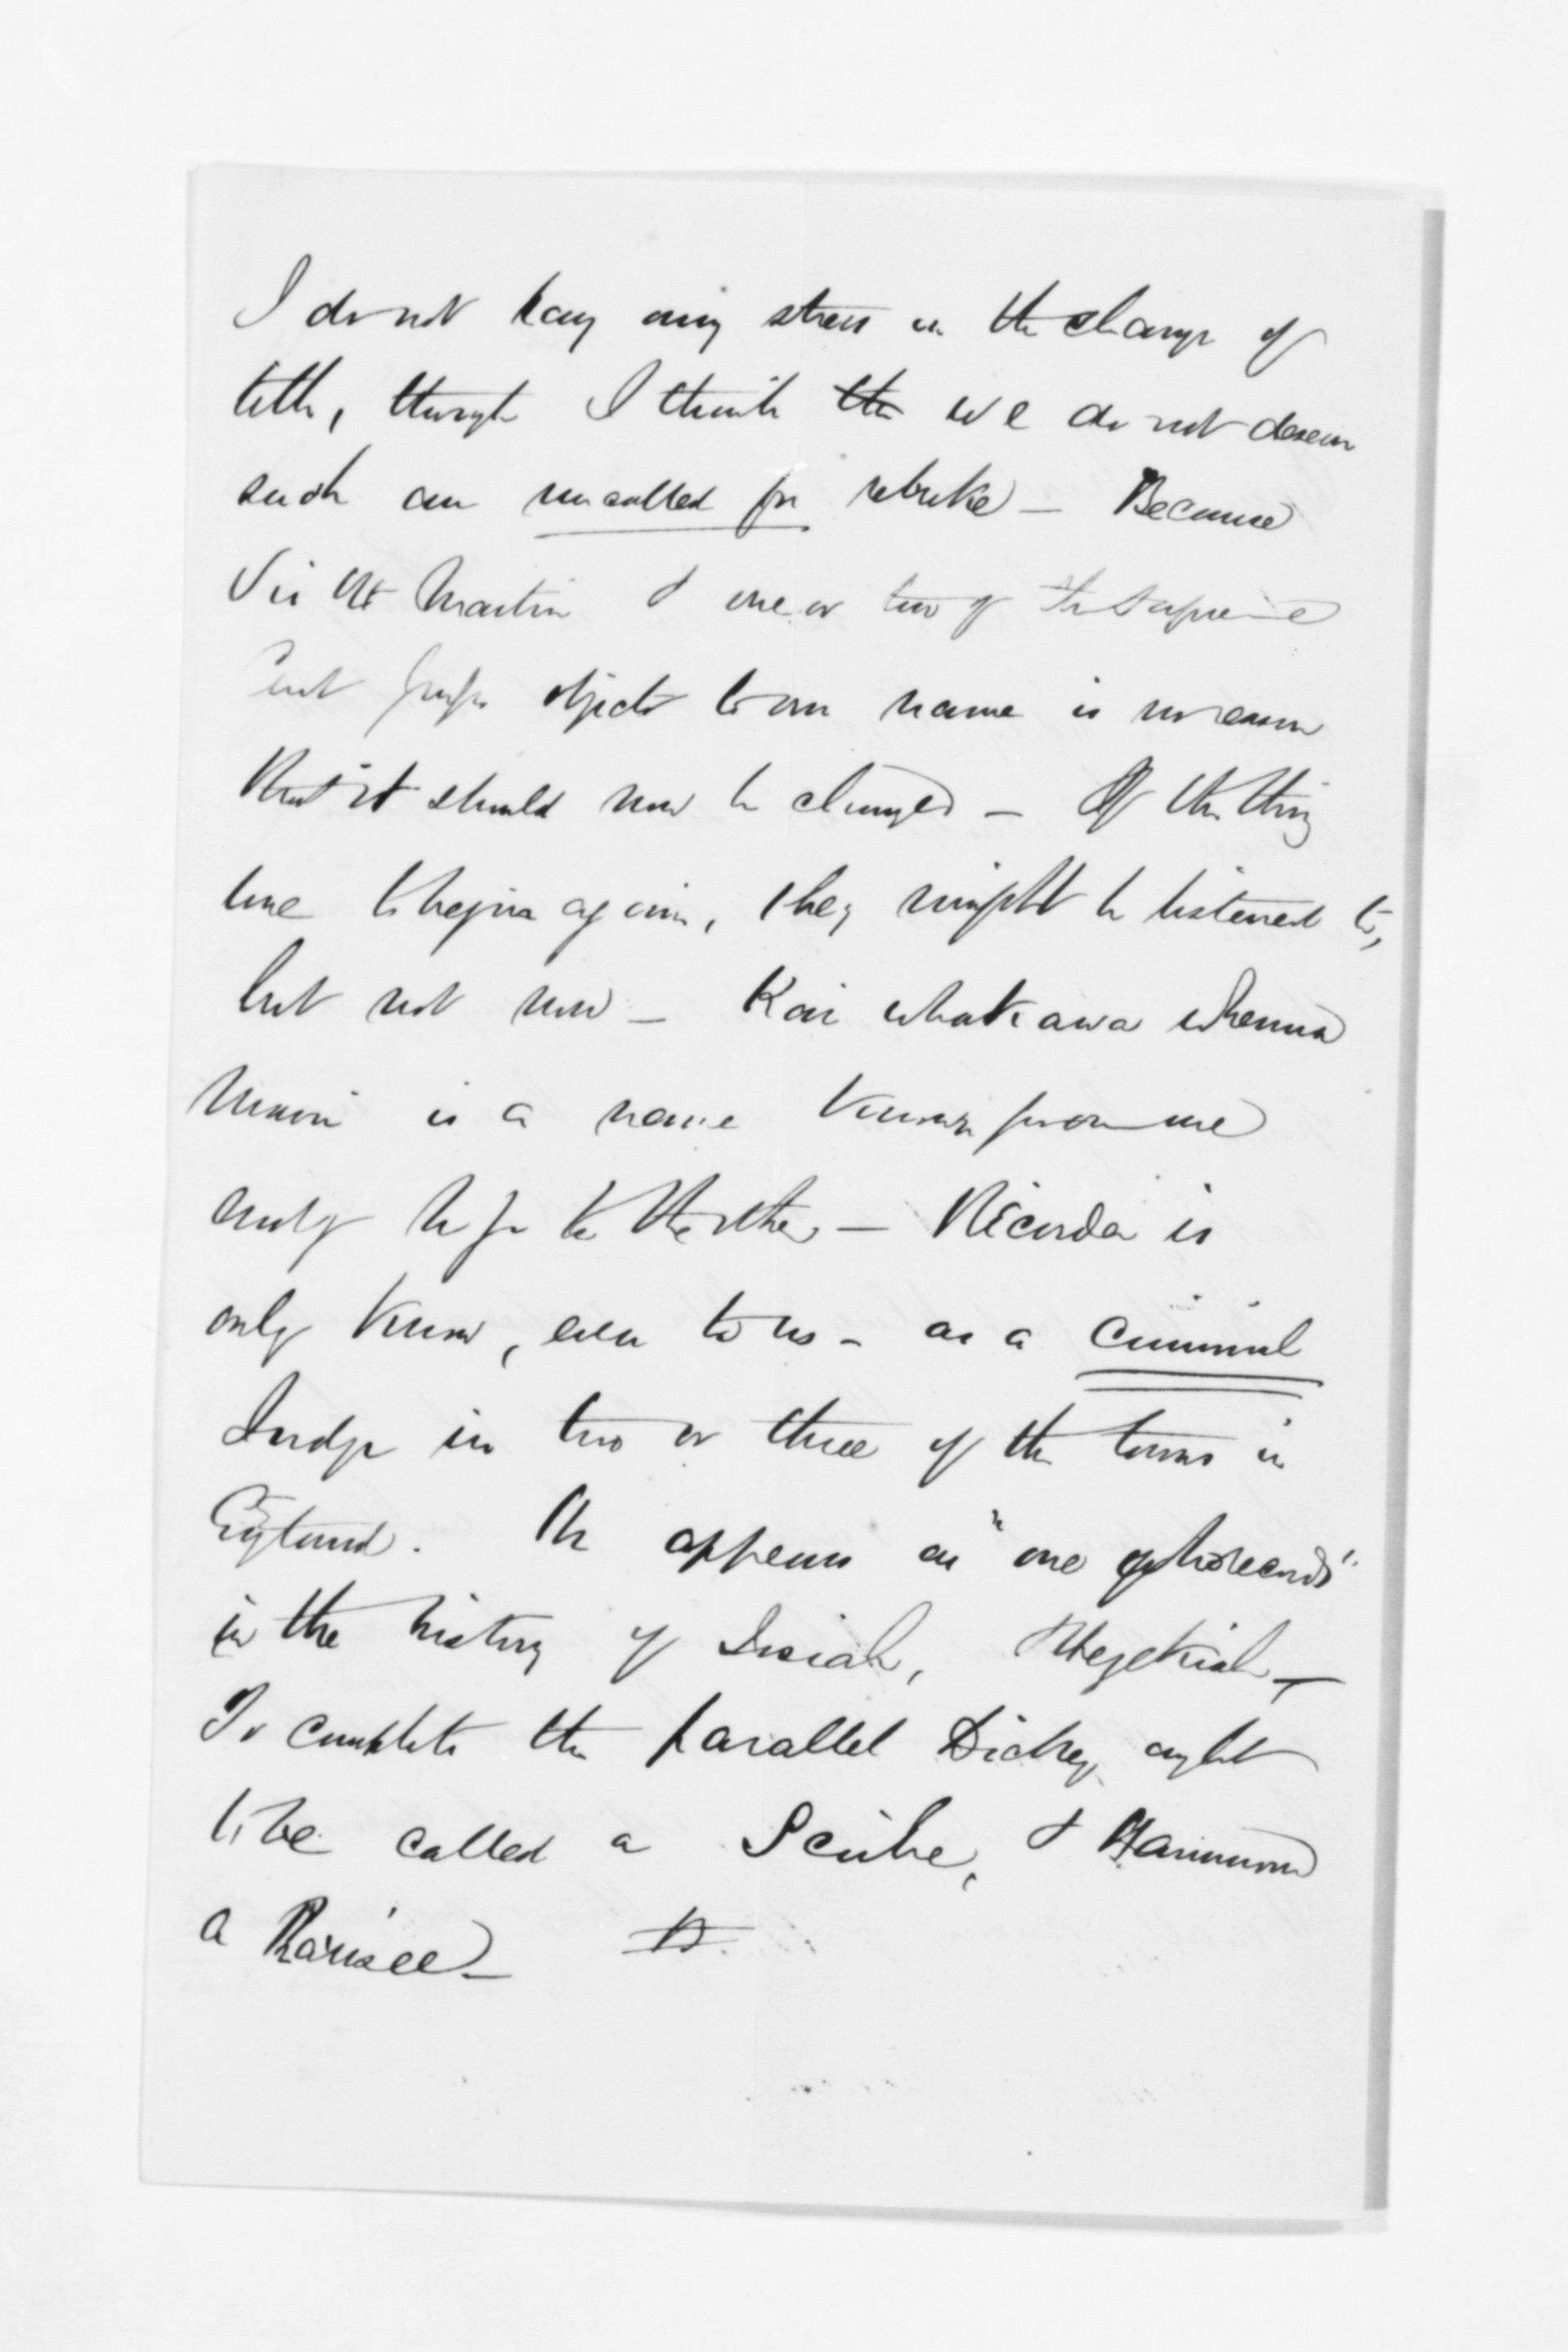 I do not lay any stress on the change of
title, though I think the we do not deserve
such an uncalled for rebuke — Because
Sir Wm Martin & one or two of the Supreme
Court Judges object to our name is no reason
that it should now be changed — If the thing
were to begin again, they might be listened to,
but not now — Kai whakawa whenua
Maori is a name known from one
end of to the other — Recorder is
only known, even to us - as a criminal
Judge in two or three of the towns in
England. He appears as "one who records"
in the history of Isaiah, Hezekiah —
To complete the parallel Dickey ought
to be called a Scribe, &
a Pharisee —